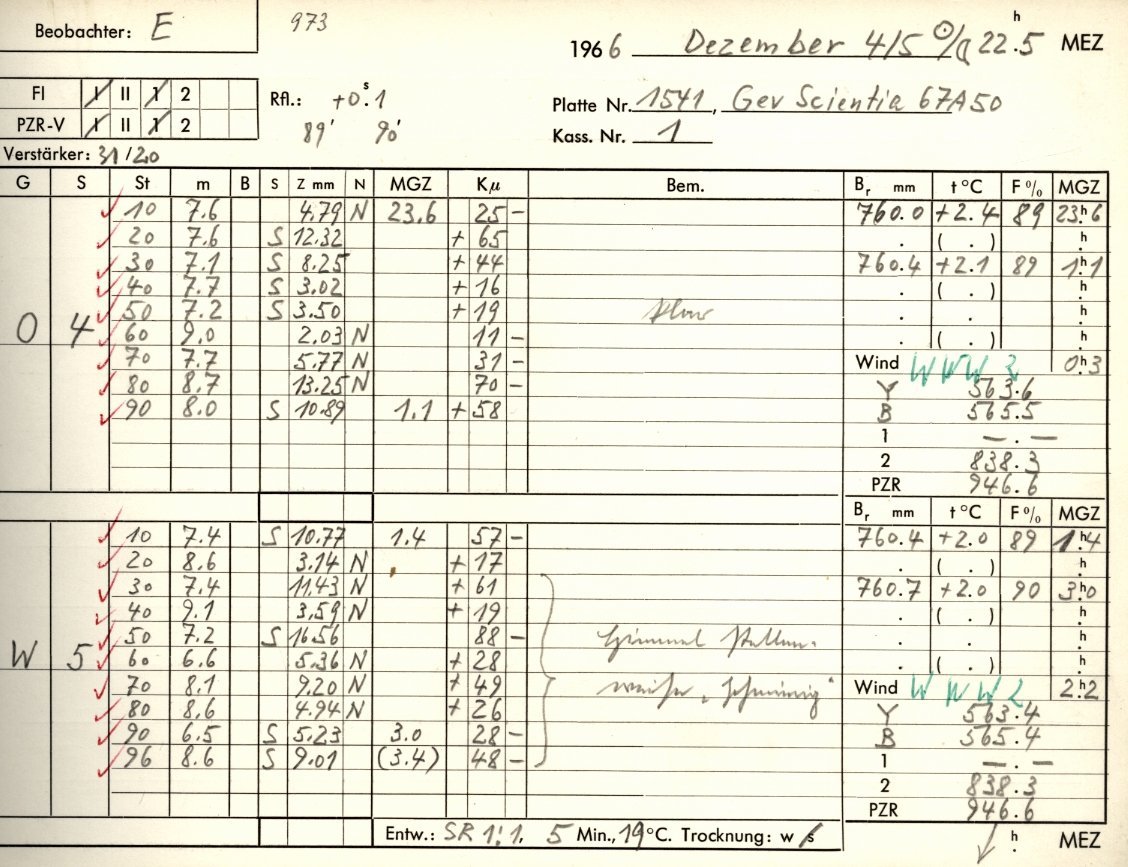 Beobachter: E 973
1966 Dezember 4/5 ☉/☾ 22.5 h MEZ
FI I II 1 2
PZR-V I II 1 2
Rfl.: +0.1 s
89' 90'
Platte Nr. 1541, Gev Scientia 67A50
Kass. Nr. 1
Verstärker: 31/20
G S St m B S Z mm N MGZ Kμ Bem. Br mm t °C F % MGZ
10 7.6 4.79 N 23.6 25 − 760.0 +2.4 89 23h.6
20 7.6 S 12.32 + 65 . ( . ) h
30 7.1 S 8.25 + 44 760.4 +2.1 89 1h.1
40 7.7 S 3.02 + 16 . ( . ) h
50 7.2 S 3.50 + 19 . . h
O 4 60 9.0 2.03 N 11 − . ( . ) h
70 7.7 5.77 N 31 − Wind WNW 3 0h.3
80 8.7 13.25 N 70 − Y 563.6
90 8.0 S 10.89 1.1 + 58 B 565.5
1 — . —
2 838.3
PZR 946.6
Br mm t °C F % MGZ
10 7.4 S 10.77 1.4 57 − 760.4 +2.0 89 1h.4
20 8.6 3.14 N + 17 . ( . ) h
30 7.4 11.43 N + 61 760.7 +2.0 90 3h.0
40 9.1 3.59 N + 19 . ( . ) h
50 7.2 S 16.56 88 − Himmel stellen- . . h
W 5 60 6.6 5.36 N + 28 . ( . ) h
70 8.1 9.20 N + 49 weise „ " Wind WNW 2 2h.2
80 8.6 4.94 N + 26 Y 563.4
90 6.5 S 5.23 3.0 28 − B 565.4
96 8.6 S 9.01 (3.4) 48 − 1 — . —
2 838.3
PZR 946.6
Entw.: SR 1:1, 5 Min., 19°C. Trocknung: w/s h . MEZ